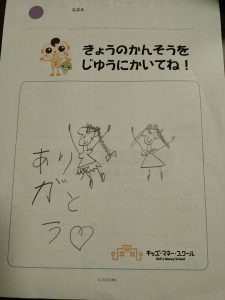 なまえ
きょうのかんそうを
じゆうにかいてね！
ありがとう♡
キッズ・マネー・スクール
Kid's Money School